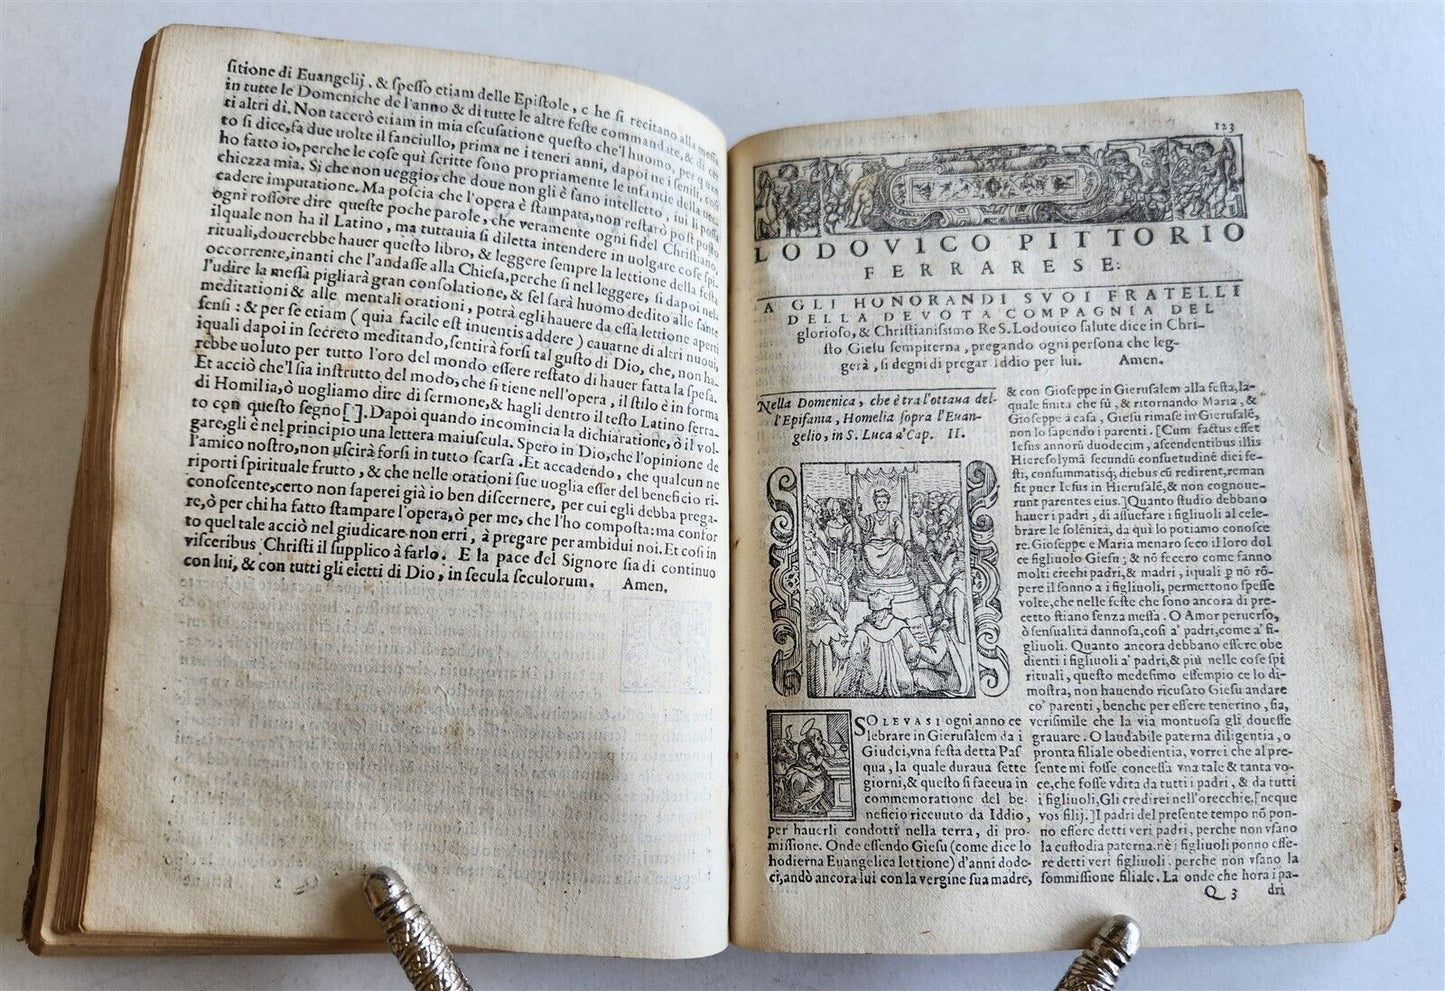 sitione di Euangelij, & spesso etiam delle Epistole, c he si recitano alla messa
in tutte le Domeniche de l'anno & di tutte le altre feste commandate, & di cer
ti altri dì. Non tacerò etiam in mia escusatione questo che'l huomo, per quan
to si dice, fa due uolte il fanciullo, prima ne i teneri anni, dapoi ne i senili, così
ho fatto io, perche le cose qui scritte sono propriamente le infantie della uec
chiezza mia. Si che non ueggio, che doue non gli è sano intelletto, iui li possa
cadere imputatione. Ma poscia che l'opera è stampata, non restarò post posto
ogni rossore dire queste poche parole, che veramente ogni fidel Christiano,
ilquale non ha il Latino, ma tuttauia si diletta intendere in uolgare cose spi-
rituali, douerebbe hauer questo libro, & leggere sempre la lettione della festa
occorrente, inanti che l'andasse alla Chiesa, perche si nel leggere, si dapoi nela
l'udire la messa pigliarà gran consolatione, & sel sarà huomo dedito alle sante
meditationi & alle mentali orationi, potrà egli hauere da essa lettione aperti
sensi: & per se etiam (quia facile est inuentis addere) cauarne di altri nuoui,
iquali dapoi in secreto meditando, sentirà forsi tal gusto di Dio, che, non ha-
rebbe uoluto per tutto l'oro del mondo essere restato di hauer fatta la spesa.
Et acciò che'l sia instrutto del modo, che si tiene nell'opera, il stilo è in forma
di Homilia, ò uogliamo dire di sermone, & hagli dentro il testo Latino serra-
to con questo segno [ ]. Dapoi quando incomincia la dichiaratione, ò il vol-
gare, gli è nel principio una lettera maiuscula. Spero in Dio, che l'opinione de
l'amico nostro, non uscirà forsi in tutto scarsa. Et accadendo, che qualcun ne
riporti spirituale frutto, & che nelle orationi sue uoglia esser del beneficio ri-
conoscente, certo non saperei già io ben discernere, per cui egli debba prega-
re, ò per chi ha fatto stampare l'opera, ò per me, che l'ho composta: ma confor
to quel tale acciò nel giudicare non erri, à pregare per ambidui noi. Et così in
visceribus Christi il supplico à farlo. E la pace del Signore sia di continuo
con lui, & con tutti gli eletti di Dio, in secula seculorum. Amen.
123
LODOVICO PITTORIO
FERRARESE:
A GLI HONORANDI SVOI FRATELLI
DELLA DEVOTA COMPAGNIA DEL
glorioso, & Christianissimo Re S. Lodouico salute dice in Chri-
sto Giesu sempiterna, pregando ogni persona che leg-
gerà, si degni di pregar Iddio per lui. Amen.
Nella Domenica, che è tra l'ottaua del-
l'Epifania, Homelia sopra l'Euan-
gelio, in S. Luca a' Cap. II.
SOLEVASI ogni anno ce
lebrare in Gierusalem da i
Giudei, vna festa detta Pas
qua, la quale duraua sette
giorni, & questo si faceua in
commemoratione del be-
neficio riceuuto da Iddio,
per hauerli condotti nella terra, di pro-
missione. Onde essendo Giesu (come dice lo
hodierna Euangelica lettione) d'anni dode-
ci, andò ancora lui con la vergine sua madre,
& con Gioseppe in Gierusalem alla festa, la-
quale finita che fù, & ritornando Maria, &
Gioseppe à casa, Giesu rimase in Gierusalẽ,
non lo sapendo i parenti. [Cum factus esset
Iesus annorũ duodecim, ascendentibus illis
Hierosolymã secundũ consuetudinẽ diei fe-
sti, consummatisq; diebus cũ redirent, reman
sit puer Iesus in Hierusalẽ, & non cognoue-
runt parentes eius.] Quanto studio debbano
hauer i padri, di assuefar i figliuoli al cele-
brare le solẽnità, da quì lo potiamo conosce
re. Gioseppe e Maria menaro seco il loro dol
ce figliuolo Giesu; & nõ fecero come fanno
molti ciechi padri, & madri, iquali ꝑ nõ rõ-
pere il sonno a i figliuoli, permettono spesse
volte, che nelle feste che sono ancora di pre-
cetto stiano senza messa. O Amor peruerso,
ò sensualita dannosa, così a' padri, come a' fi-
gliuoli. Quanto ancora debbano essere obe
dienti i figliuoli a' padri, & più nelle cose spi
rituali, questo medesimo essempio ce lo di-
mostra, non hauendo ricusato Giesu andare
co' parenti, benche per essere tenerino, sia,
verisimile che la via montuosa gli douesse
grauare. O laudabile paterna diligentia, o
pronta filiale obedientia, vorrei che al pre-
sente mi fosse concessa vna tale & tanta vo-
ce, che fosse vdita da tutti i padri, & da tutti
i figliuoli, Gli credirei nell'orecchie. [neque
vos filij.] I padri del presente tempo nõ pon-
no essere detti veri padri, perche non vsano
la custodia paterna. nè i figliuoli ponno esse-
re detti veri figliuoli. perche non vsano la
sommissione filiale. La onde che hora i pa-
Q 3 dri